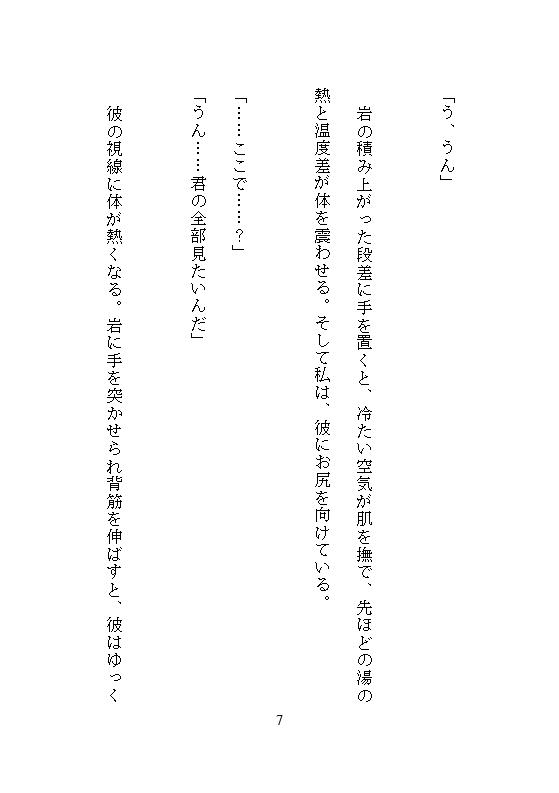 「う、うん」
岩の積み上がった段差に手を置くと、冷たい空気が肌を撫で、先ほどの湯の
熱と温度差が体を震わせる。そして私は、彼にお尻を向けている。
「……ここで……？」
「うん……君の全部見たいんだ」
彼の視線に体が熱くなる。岩に手を突かせられ背筋を伸ばすと、彼はゆっく
7